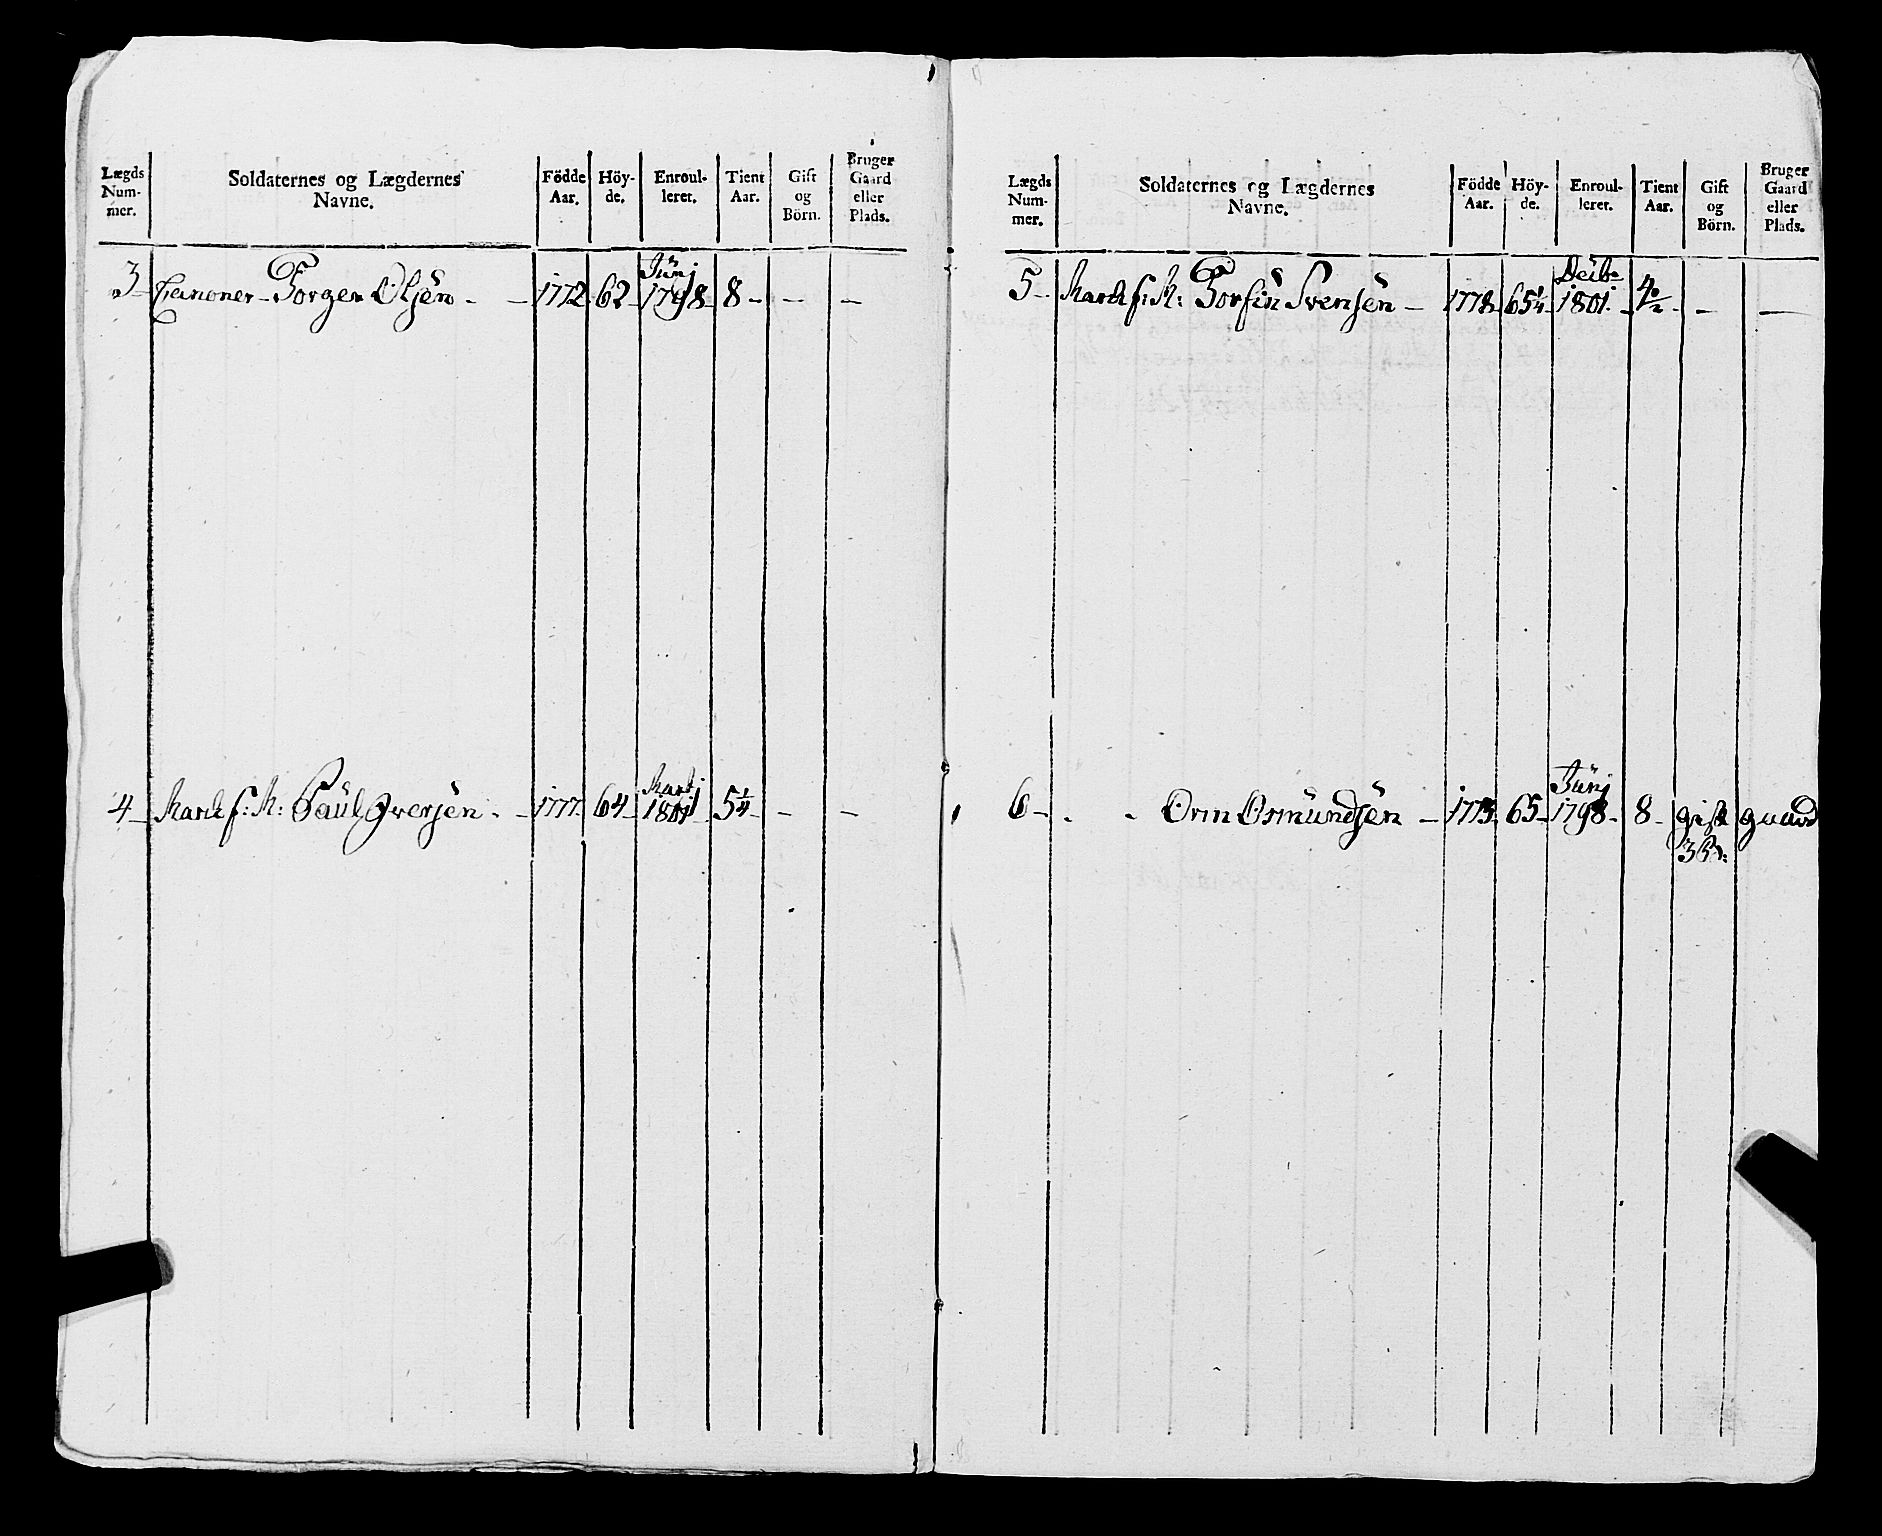 Lægds Num-mer. | Soldaternes og Lægdernes Navne. | Födde Aar. | Höy-de. | Enroul-leret. | Tient Aar. | Gift og Börn. | Bruger Gaard eller Plads.
3 - Canoner - Torger Olsen - - 1772 - 62 - Junj 1798 - 8 - - -
4 - f: Paul Iversen - - 1777 - 64 - 1801 - 5¼ - - -
Lægds Num-mer. | Soldaternes og Lægdernes Navne. | Födde Aar. | Höy-de. | Enroul-leret. | Tient Aar. | Gift og Börn. | Bruger Gaard eller Plads.
5 - f: Torfin Svensen - 1778 - 65¼ - 1801 - - -
6 - - - Orm Osmundsen - 1773 - 65 - Junj 1798 - 8 - gift gaard
3